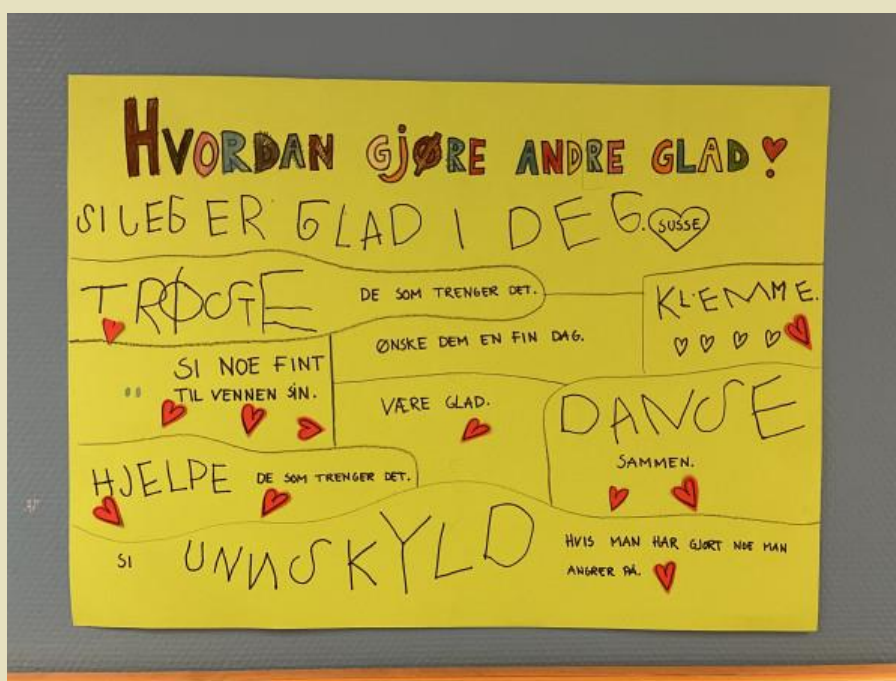 HVORDAN GJØRE ANDRE GLAD!
SI JEG ER GLAD I DEG. SUSSE
TRØSTE DE SOM TRENGER DET.
KLEMME.
ØNSKE DEM EN FIN DAG.
SI NOE FINT
TIL VENNEN SIN.
VÆRE GLAD.
DANSE
SAMMEN.
HJELPE DE SOM TRENGER DET.
SI UNNSKYLD HVIS MAN HAR GJORT NOE MAN
ANGRER PÅ.